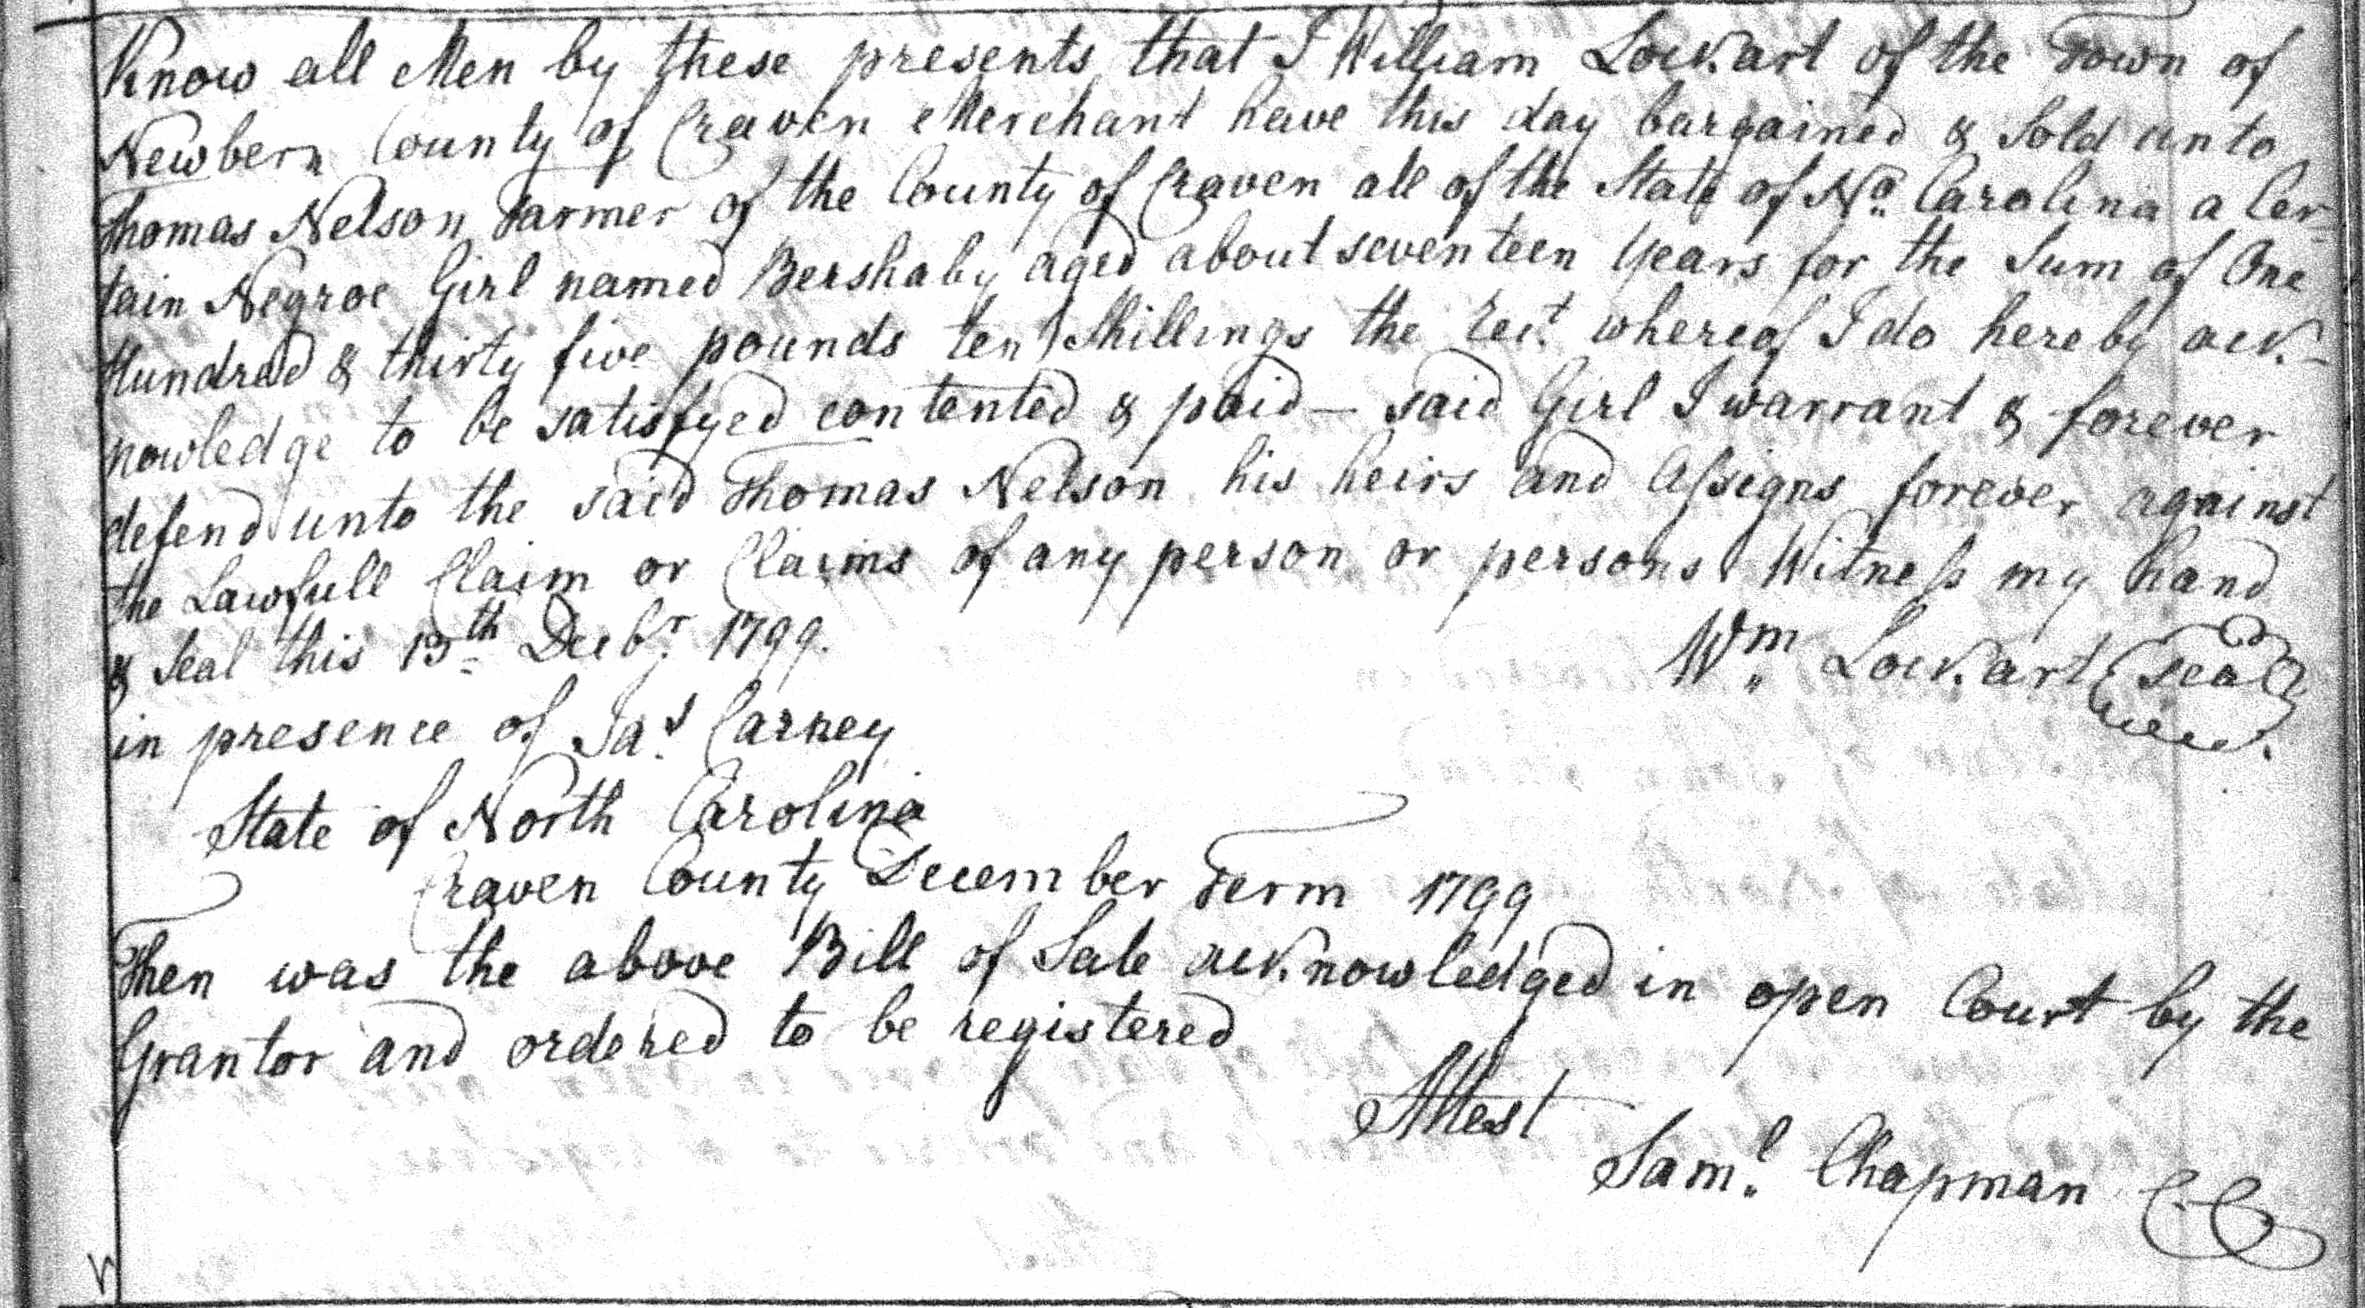 Know all Men by these presents that I William Lockart of the Town of
Newbern County of Craven Merchant have this day bargained & Sold unto
Thomas Nelson Farmer of the County of Craven all of the State of No. Carolina a Cer-
tain Negroe Girl named Bershaby aged about seventeen Years for the Sum of One
Hundred & thirty five pounds ten Shillings the rect. whereof I do hereby ack-
nowledge to be satisfyed contented & paid — said Girl I warrant & forever
defend unto the said Thomas Nelson his heirs and Assigns forever against
the Lawfull Claim or Claims of any person or persons Witness my hand
& Seal this 13th Decbr. 1799.
Wm. Lockart Seal
in presence of Jas. Carney
State of North Carolina
Craven County December Term 1799
Then was the above Bill of Sale acknowledged in open Court by the
Grantor and ordered to be registered
Attest
Saml. Chapman C.C.